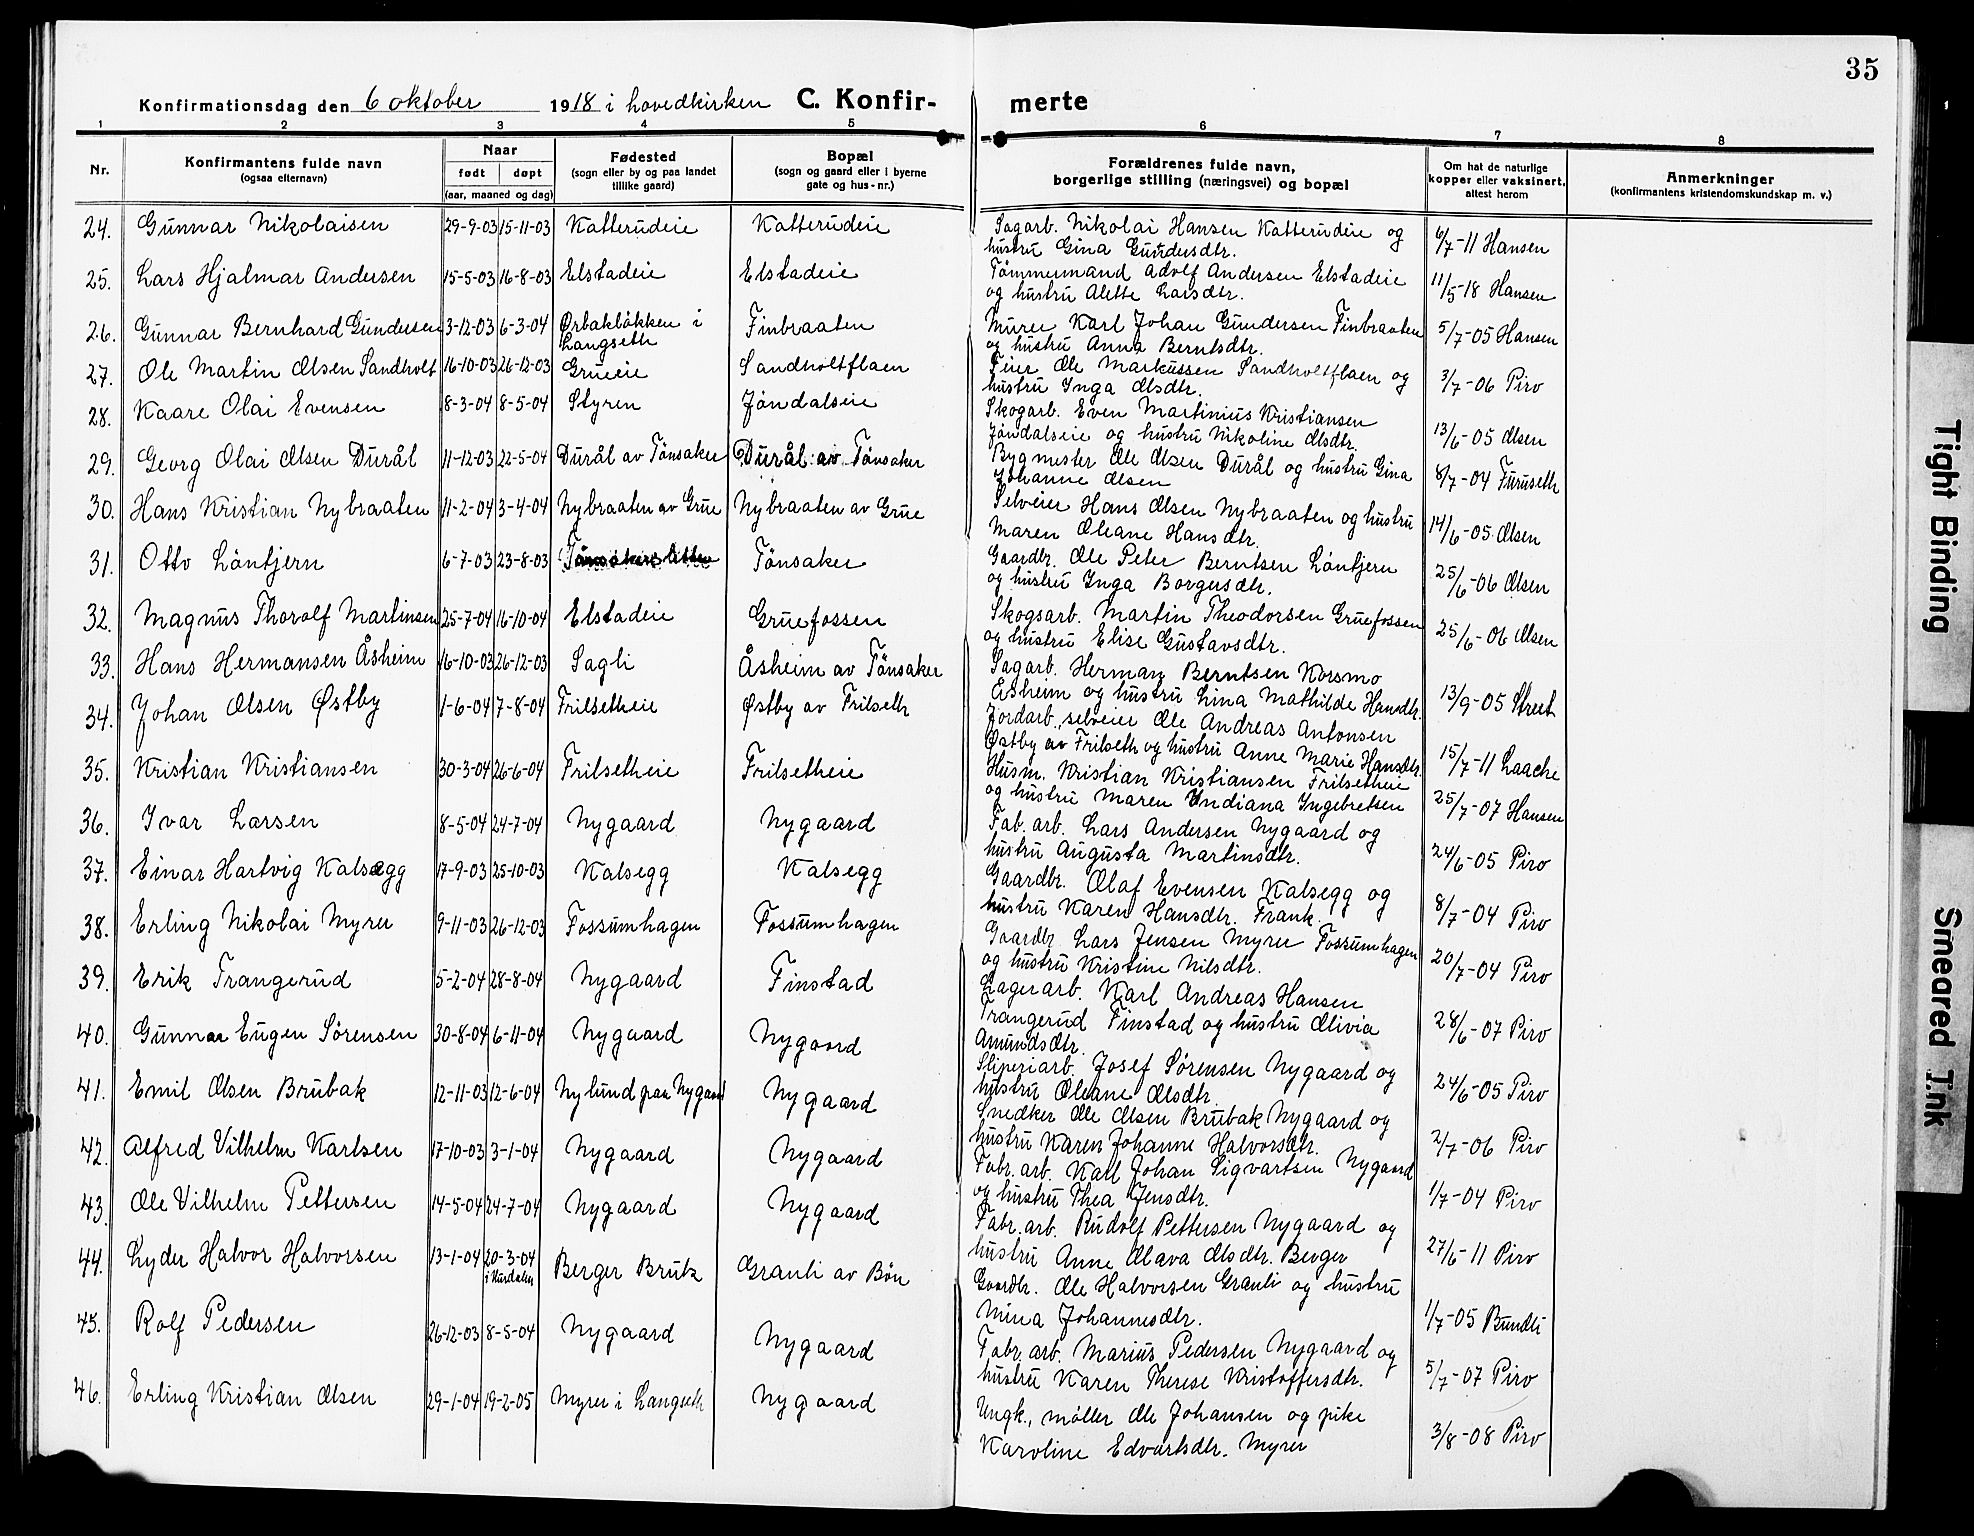 35
Konfirmationsdag den 6 oktober 1918 i hovedkirken C. Konfirmerte
1 2 3 4 5 6 7 8
Nr. Konfirmantens fulde navn (ogsaa efternavn) Naar født døpt (aar, maaned og dag) Fødested (sogn eller by og paa landet tillike gaard) Bopæl (sogn og gaard eller i byerne gate og hus-nr.) Forældrenes fulde navn, borgerlige stilling (næringsvei) og bopæl Om hat de naturlige kopper eller vaksinert, attest herom Anmerkninger (konfirmantens kristendomskundskap m. v.)
24. Gunnar Nikolaisen 29-9-03 15-11-03 Katterudeie Katterudeie Sagarb. Nikolai Hansen Katterudeie og 6/7-11 Hansen
hustru Gina Gundersdtr.
25. Lars Hjalmar Andersen 15-5-03 16-8-03 Elstadeie Elstadeie Tømmermand Adolf Andersen Elstadeie 11/5-18 Hansen
og hustru Alette Larsdtr.
26. Gunnar Bernhard Gundersen 3-12-03 6-3-04 Ørbakløkken i Langseth Finbraaten Murer Karl Johan Gundersen Finbraaten 5/7-05 Hansen
og hustru Anna Berntsdtr.
27. Ole Martin Olsen Sandholt 16-10-03 26-12-03 Grueie Sandholtflaen Feier Ole Markussen Sandholtflaen og 3/7-06 Piro
hustru Inga Olsdtr.
28. Kaare Olai Evensen 8-3-04 8-5-04 Styren Jøndalseie Skogarb. Even Martinius Kristiansen 13/6-05 Olsen
Jøndalseie og hustru Nikoline Olsdtr.
29. Georg Olai Olsen Durål 11-12-03 22-5-04 Durål av Tønsaker Durål av Tønsaker Bygmester Ole Olsen Durål og hustru Gina 8/7-04 Furuseth
Johanne Olsen
30. Hans Kristian Nybraaten 11-2-04 3-4-04 Nybraaten av Grue Nybraaten av Grue Selveier Hans Olsen Nybraaten og hustru 14/6-05 Olsen
Maren Oleane Hansdtr.
31. Otto Løntjern 6-7-03 23-8-03 Tønsaker Gaardbr. Ole Peter Berntsen Løntjern 25/6-06 Olsen
og hustru Inga Borgersdtr.
32. Magnus Thorolf Martinsen 25-7-04 16-10-04 Elstadeie Gruefossen Skogsarb. Martin Theodorsen Gruefossen 25/6-06 Olsen
og hustru Elise Gustavsdtr.
33. Hans Hermansen Åsheim 16-10-03 26-12-03 Sagli Åsheim av Tønsaker Sagarb. Herman Berntsen Korsmo 13/9-05 Street
Åsheim og hustru Lina Mathilde Hansdtr.
34. Johan Olsen Østby 1-6-04 7-8-04 Frilsetheie Østby av Frilseth Jordarb., selveier Ole Andreas Antonsen 15/7-11 Laache
Østby av Frilseth og hustru Anne Marie Hansdtr.
35. Kristian Kristiansen 30-3-04 26-6-04 Frilsetheie Frilsetheie Husm. Kristian Kristiansen Frilsetheie 25/7-07 Hansen
og hustru Maren Indiana Ingebretsen
36. Ivar Larsen 8-5-04 24-7-04 Nygaard Nygaard Fab. arb. Lars Andersen Nygaard og 24/6-05 Piro
hustru Augusta Martinsdtr.
37. Einar Hartvig Kalsegg 17-9-03 25-10-03 Kalsegg Kalsegg Gaardbr. Olaf Evensen Kalsegg og 8/7-04 Piro
hustru Karen Hansdtr. Frank.
38. Erling Nikolai Myrer 9-11-03 26-12-03 Fossumhagen Fossumhagen Gaardbr. Lars Jensen Myrer Fossumhagen 20/7-04 Piro
og hustru Kristine Nilsdtr.
39. Erik Trangerud 5-2-04 28-8-04 Nygaard Finstad Lagerarb. Karl Andreas Hansen 28/6-07 Piro
Trangerud Finstad og hustru Olivia
Amundsdtr.
40. Gunnar Eugen Sørensen 30-8-04 6-11-04 Nygaard Nygaard Sliperiarb. Josef Sørensen Nygaard og 24/6-05 Piro
hustru Oleane Olsdtr.
41. Emil Olsen Brubak 12-11-03 12-6-04 Nylund paa Nygaard Nygaard Snedker Ole Olsen Brubak Nygaard og 2/7-06 Piro
hustru Karen Johanne Halvorsdtr.
42. Alfred Vilhelm Karlsen 17-10-03 3-1-04 Nygaard Nygaard Fabr. arb. Karl Johan Sigvartsen Nygaard 1/7-04 Piro
og hustru Thea Jensdtr.
43. Ole Vilhelm Pettersen 14-5-04 24-7-04 Nygaard Nygaard Fabr. arb. Rudolf Pettersen Nygaard og 27/6-11 Piro
hustru Anne Olava Olsdtr. Berger
44. Lyder Halvor Halvorsen 13-1-04 20-3-04 i Hurdalen Berger Bruk Granli av Bøn Gaardbr. Ole Halvorsen Granli og hustru 1/7-05 Bundli
Mina Johannesdtr.
45. Rolf Pedersen 26-12-03 8-5-04 Nygaard Nygaard Fabr. arb. Marius Pedersen Nygaard og 5/7-07 Piro
hustru Karen Therese Kristoffersdtr.
46. Erling Kristian Olsen 29-1-04 19-2-05 Myrer i Langseth Nygaard Ungk., møller Ole Johansen og pike 3/8-08 Piro
Karoline Edvartsdtr. Myrer
Tight Binding
Smeared Ink